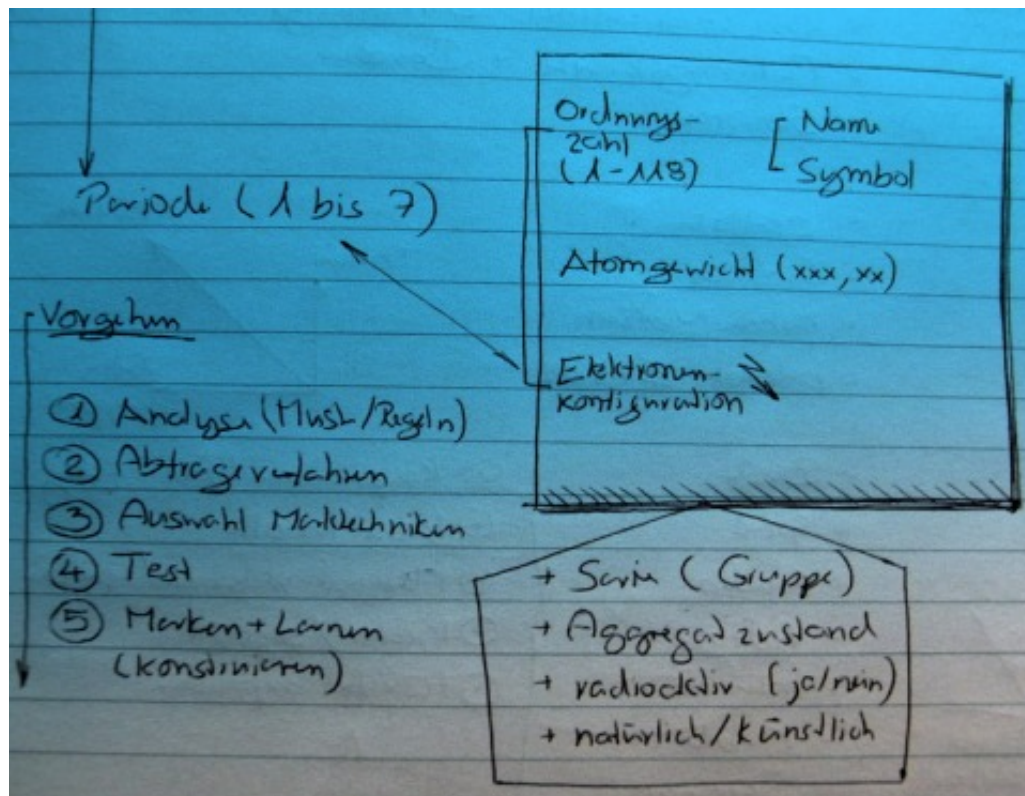 Periode (1 bis 7)
Vorgehen
① Analyse (Must./Regeln)
② Abfrageverfahren
③ Auswahl Merktechniken
④ Test
⑤ Merken + Lernen
Ordnungs-
zahl
(1-118)
Name
Symbol
Atomgewicht (xxx,xx)
Elektronen-
konfiguration
+ Serie (Gruppe)
+ Aggregatzustand
+ radioaktiv (ja/nein)
+ natürlich/künstlich